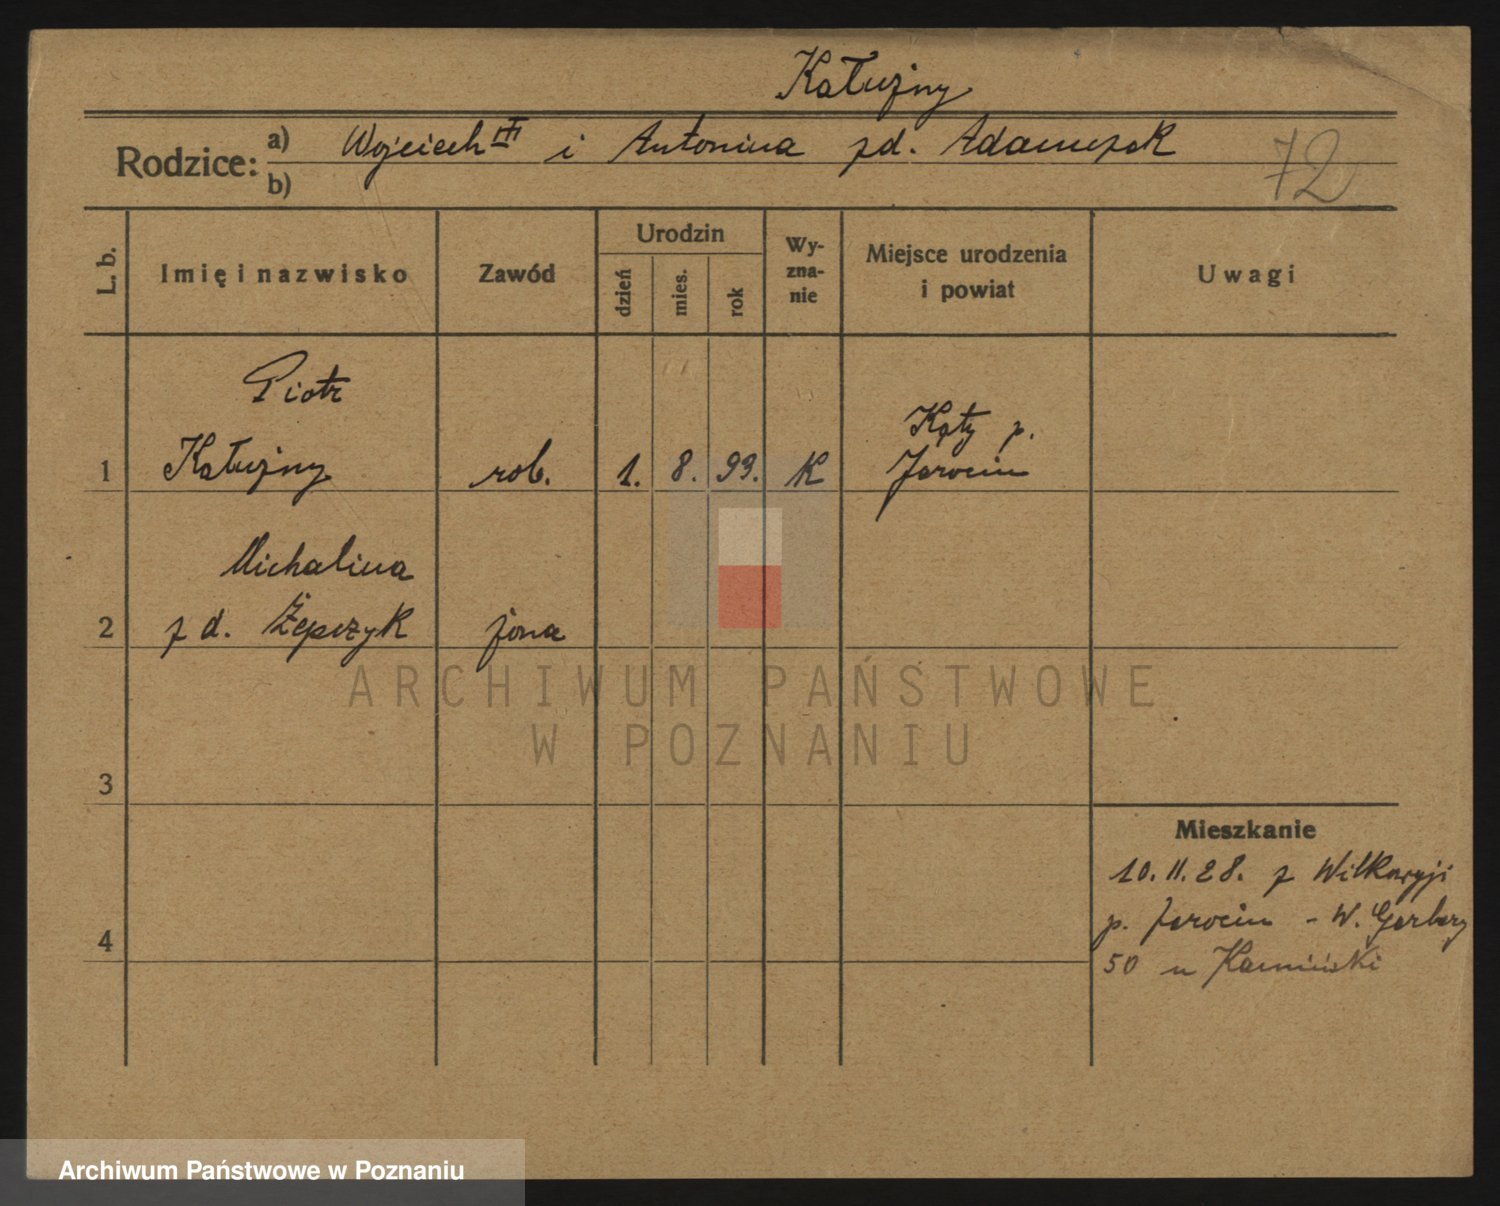 Kałużny
Rodzice: a) Wojciech i Antonina zd. Adamczak
b)
72
L. b.
Imię i nazwisko
Zawód
Urodzin
dzień
mies.
rok
Wy-
zna-
nie
Miejsce urodzenia
i powiat
Uwagi
Piotr
1 Kałużny rob. 1. 8. 93. K
Kąty p.
Jarocin
Michalina
2 z d. Żepczyk żona
ARCHIWUM PAŃSTWOWE
W POZNANIU
3
4
Mieszkanie
10. 11. 28. z Wilkowyji
p. Jarocin - W. Garbary
50 u Kamiński
Archiwum Państwowe w Poznaniu